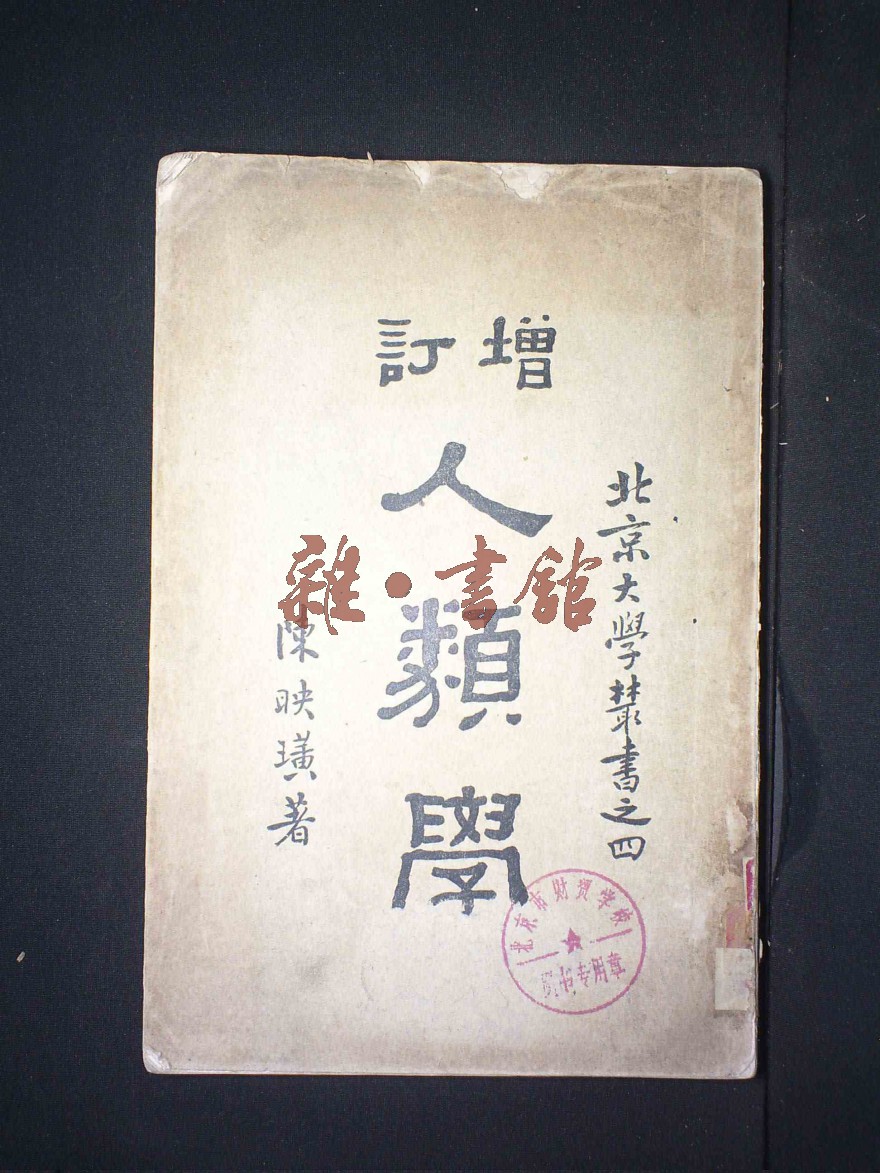 北京大學叢書之四
增訂
人類學
陳映璜著
雜·書館
北京市财贸学校
图书专用章